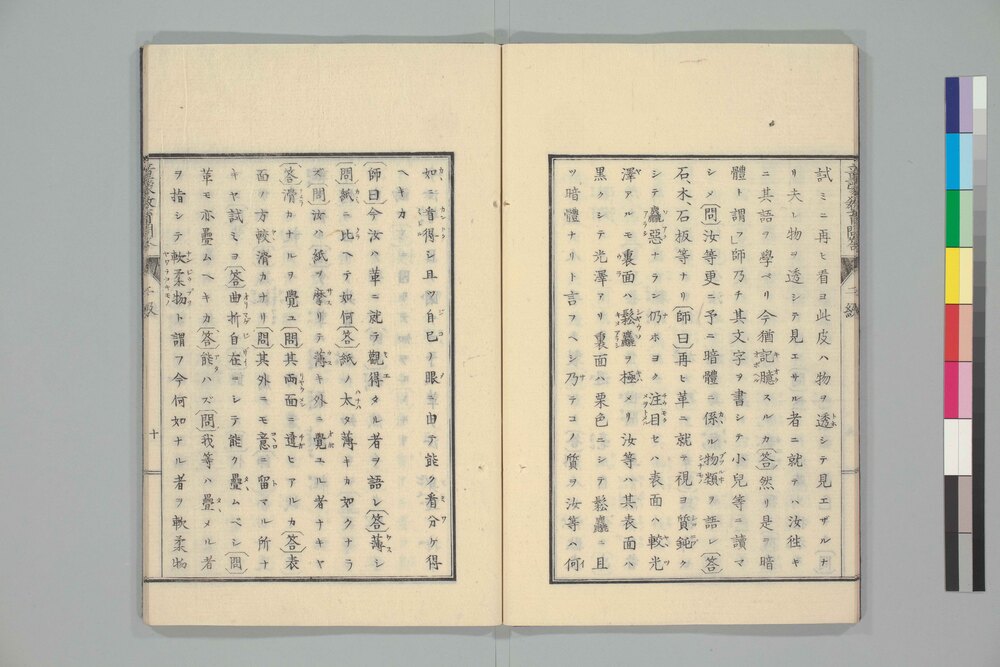 試ミニ再ヒ看ヨ此皮ハ物ヲ透シテ見エザルナ
リ夫レ物ヲ透シテ見エサル者ニ就テハ汝徃キ
ニ其語ヲ學ベリ今猶記臆スルカ〔答〕然リ是ヲ暗
體ト謂フ」師乃チ其文字ヲ書シテ小兒等ニ讀マ
シメ〔問〕汝等更ニ予ニ暗體ニ係ル物類ヲ語レ〔答〕
石、木、石板等ナリ〔師曰〕再ヒ革ニ就テ視ヨ質鈍ク
シテ麤惡ナラン仍ホヨク注目セハ表面ハ較光
澤アルモ裏面ハ鬆麤ヲ極メリ汝等ハ其表面ハ
黒クシテ光澤アリ裏面ハ栗色ニシテ鬆麤ニ且
ツ暗體ナリト言フベシ乃テコノ質ヲ汝等ハ何
十
如ニ看得シ且ツ自己ノ眼ニ由テ能ク看分ケ得
ヘキカ
〔師曰〕今汝ハ革ニ就テ觀得タル者ヲ語レ〔答〕薄シ
〔問〕紙ニ比ヘテ如何〔答〕紙ノ太タ薄キカ如クナラ
ズ〔問〕汝ハ紙ヲ摩リテ薄キ外ニ覺ユル者ナキヤ
〔答〕滑カナルヲ覺ユ〔問〕其兩面ニ違ヒアルカ〔答〕表
面ノ方較滑カナリ〔問〕其外ニモ意ニ留マル所ナ
キヤ試ミヨ〔答〕曲折自在ニシテ能ク疊ムベシ〔問〕
革モ亦疊ムヘキカ〔答〕能ハズ〔問〕我等ハ疊メル者
ヲ指シテ軟柔物ト謂フ今何如ナル者ヲ軟柔物